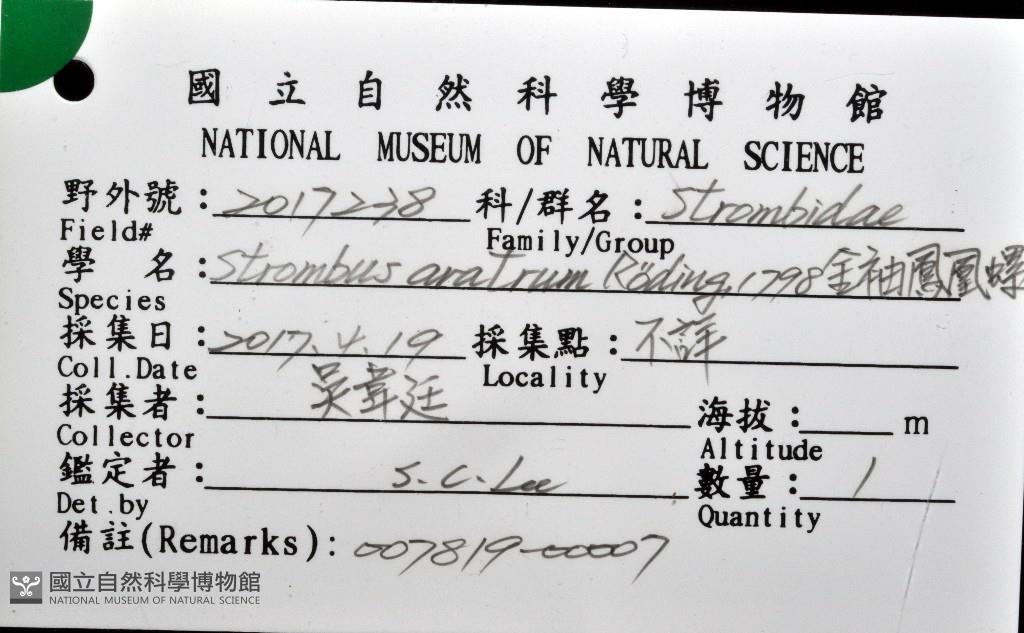 國立自然科學博物館
NATIONAL MUSEUM OF NATURAL SCIENCE
野外號:2017238 科/群名:Strombidae
Field# Family/Group
學名:Strombus aratrum Röding, 1798 金袖鳳凰螺
Species
採集日:2017.4.19 採集點:不詳
Coll.Date Locality
採集者:吳韋廷 海拔: m
Collector Altitude
鑑定者:S.C.Lee 數量:1
Det.by Quantity
備註(Remarks):007819-00007
國立自然科學博物館
NATIONAL MUSEUM OF NATURAL SCIENCE